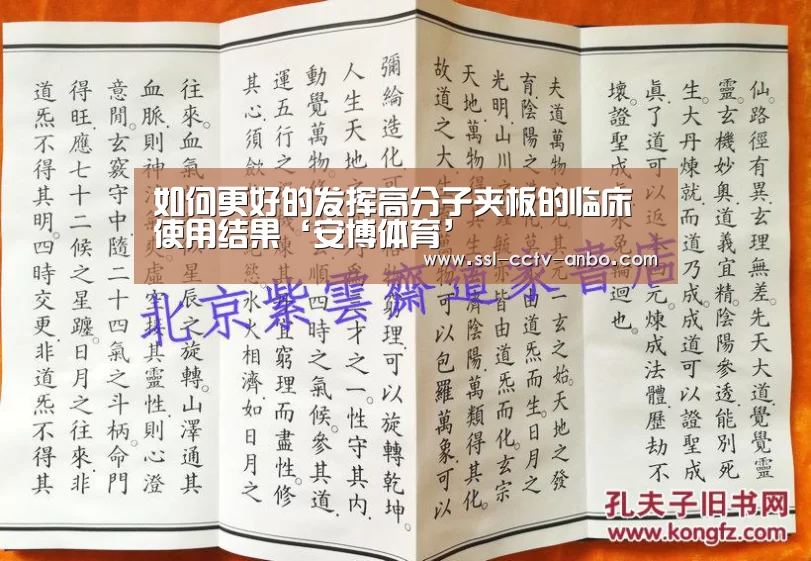 如何更好的发挥高分子夹板的临床
使用结果‘安博体育’
www.ssl-cctv-anbo.com
仙。路徑有異玄理無差。先天大道覺覺靈
靈。玄機妙奥道義宜精陰陽參透。能別死
生。大丹煉就。而道乃成。成道可以證聖成
眞。了道可以返元。煉成法體歷劫不
壞。證聖成永免輪迴也。
夫道萬物元。其元一玄之始。天地之發
育。陰陽之化。萬由道炁而生。日月之
光明。山川之毓。亦皆由道炁而化。玄宗
天地。萬物得其生濟陰陽。萬類得其化。
故道之大生物。可以包羅萬象。可以
彌綸造化。可物窮理。可以旋轉乾坤。
人生天地之為才之一。性守其內。
動覺萬物。玄順四時之氣候。參其道。
運五行之煉其宜窮理而盡性。修
其心須歛慾。水火相濟。如日月之
往來。血氣星辰之旋轉。山澤通其
血脈。則神氣爽。虛空接其靈性。則心澄
意閒。玄竅守中。隨二十四氣之斗柄。命門
得旺。應七十二候之星躔。日月之往來非
道炁不得其明。四時交更。非道炁不得其
北京紫雲齋道家書店
孔夫子旧书网
www.kongfz.com